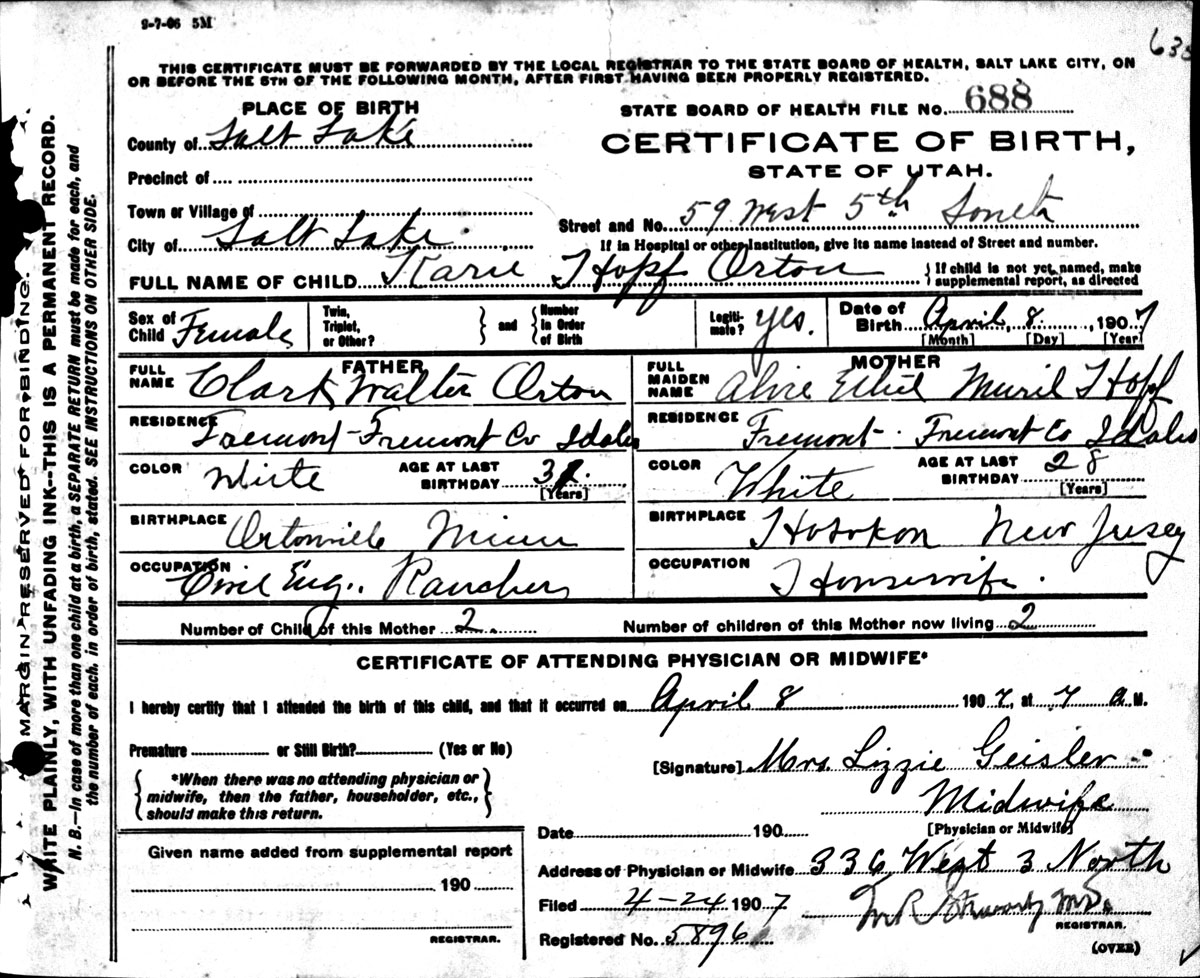 9-7-06 5M
635
THIS CERTIFICATE MUST BE FORWARDED BY THE LOCAL REGISTRAR TO THE STATE BOARD OF HEALTH, SALT LAKE CITY, ON
OR BEFORE THE 5TH OF THE FOLLOWING MONTH, AFTER FIRST HAVING BEEN PROPERLY REGISTERED.
PLACE OF BIRTH
STATE BOARD OF HEALTH FILE NO. 688
County of Salt Lake
CERTIFICATE OF BIRTH,
STATE OF UTAH.
Precinct of
Town or Village of
Street and No. 59 West 5th South
City of Salt Lake
If in Hospital or other Institution, give its name instead of Street and number.
FULL NAME OF CHILD Karie Hopf Orton
{If child is not yet named, make
supplemental report, as directed
Sex of Child Female
Twin, Triplet, or Other? } and { Number in Order of Birth
Legitimate? yes.
Date of Birth April 8, 1907
[Month] [Day] [Year]
FATHER
MOTHER
FULL NAME Clark Walter Orton
FULL MAIDEN NAME Alvie Ethel Muril Hopf
RESIDENCE Fremont-Fremont Co Idaho
RESIDENCE Fremont. Fremont Co Idaho
COLOR White
AGE AT LAST BIRTHDAY
[Years]
COLOR White
AGE AT LAST BIRTHDAY 28
(Years]
BIRTHPLACE Ortonville Minn
BIRTHPLACE Hoboken New Jersey
OCCUPATION Civil Eng., Rancher
OCCUPATION Housewife.
Number of Child of this Mother 2.
Number of children of this Mother now living 2
CERTIFICATE OF ATTENDING PHYSICIAN OR MIDWIFE*
I hereby certify that I attended the birth of this child, and that it occurred on April 8 1907, at 7 a M.
Premature or Still Birth? (Yes or No)
{*When there was no attending physician or
midwife, then the father, householder, etc.,
should make this return.}
[Signature] Mrs Lizzie Geisler
Midwife
[Physician or Midwife]
Date 190
Given name added from supplemental report
190
REGISTRAR.
Address of Physician or Midwife 336 West 3 North
Filed 4-24 1907
M R MD.
REGISTRAR.
Registered No. 5896
(OVER)
MARGIN RESERVED FOR BINDING.
WRITE PLAINLY, WITH UNFADING INK--THIS IS A PERMANENT RECORD.
N. B.—In case of more than one child at a birth, a SEPARATE RETURN must be made for each, and
the number of each, in order of birth, stated. SEE INSTRUCTIONS ON OTHER SIDE.